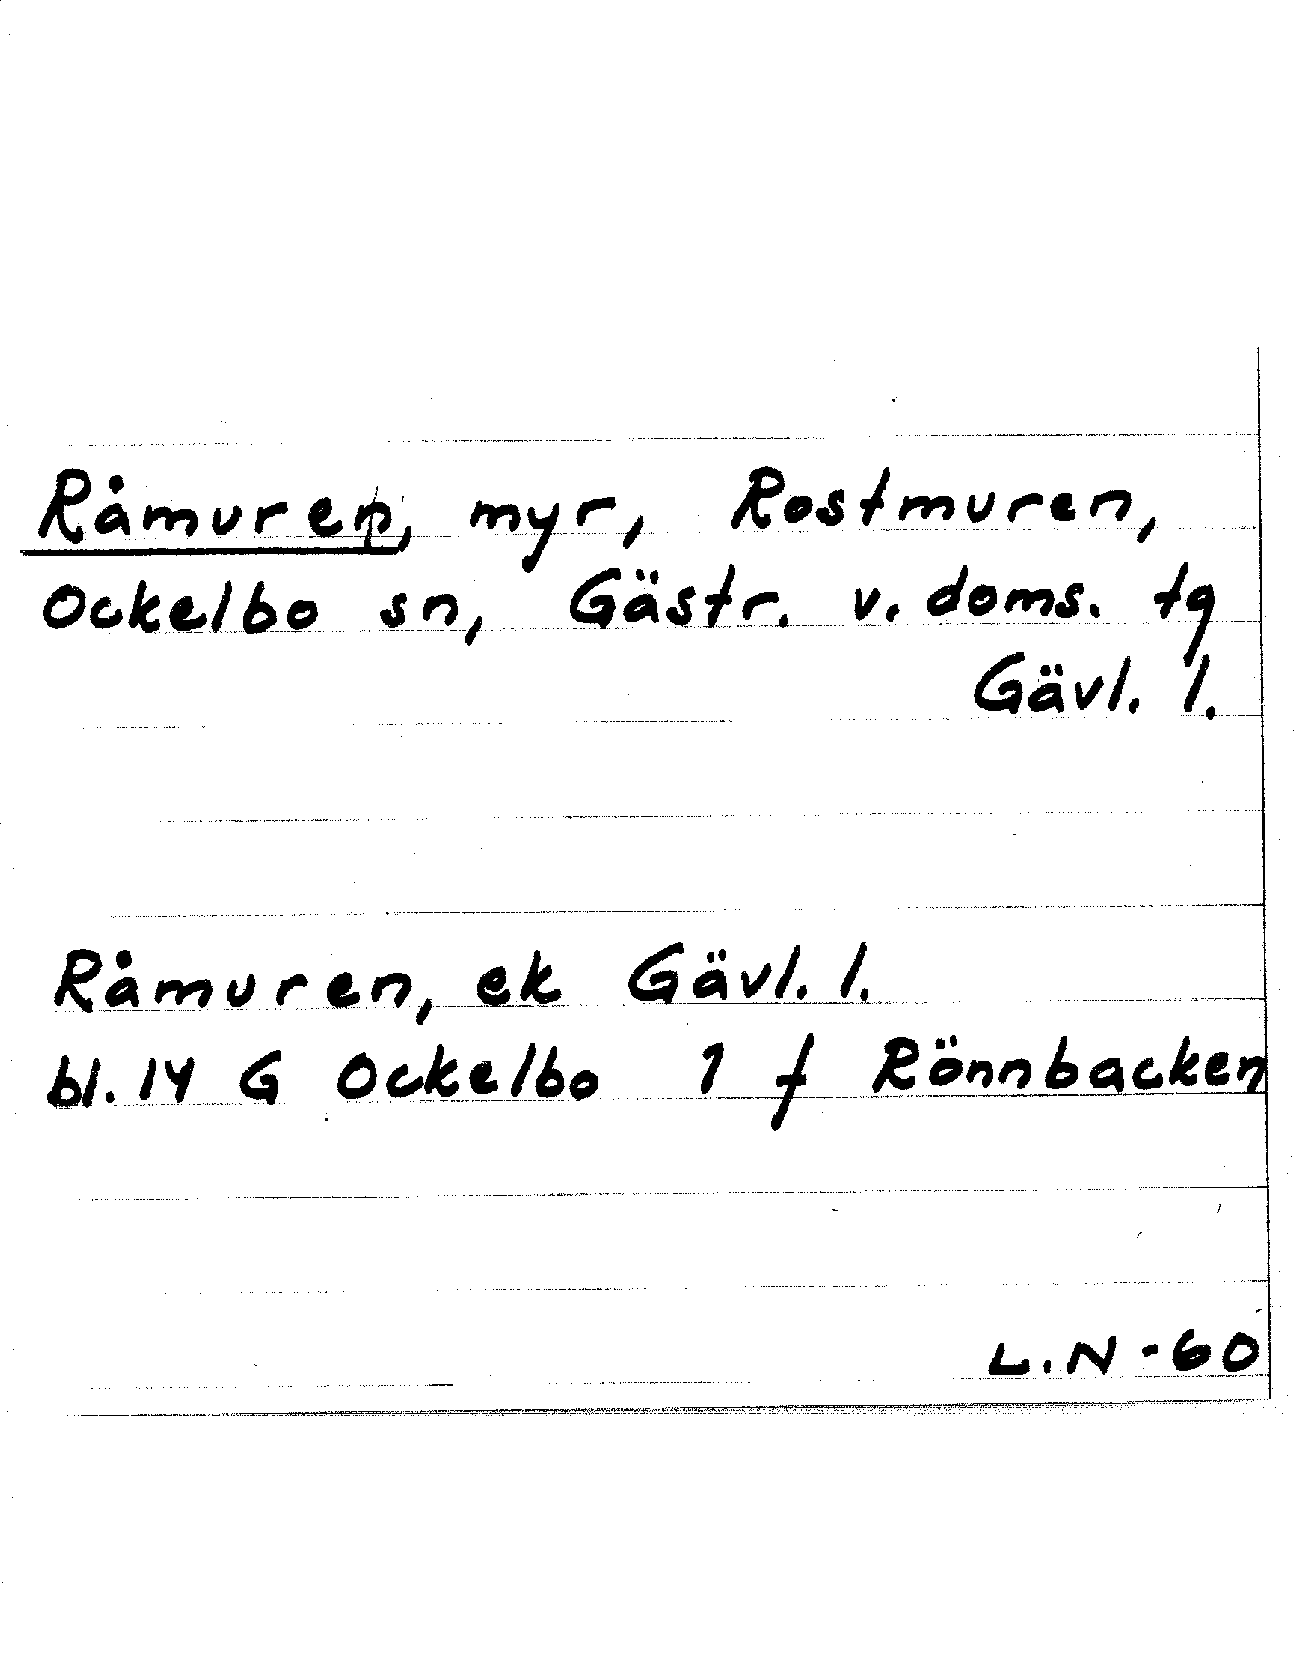 Råmuren, myr, Rostmuren,
Ockelbo sn, Gästr. v. doms. tg
Gävl. l.
Råmuren, ek Gävl. l.
bl. 14 G Ockelbo 1 f Rönnbacken
L.N -60